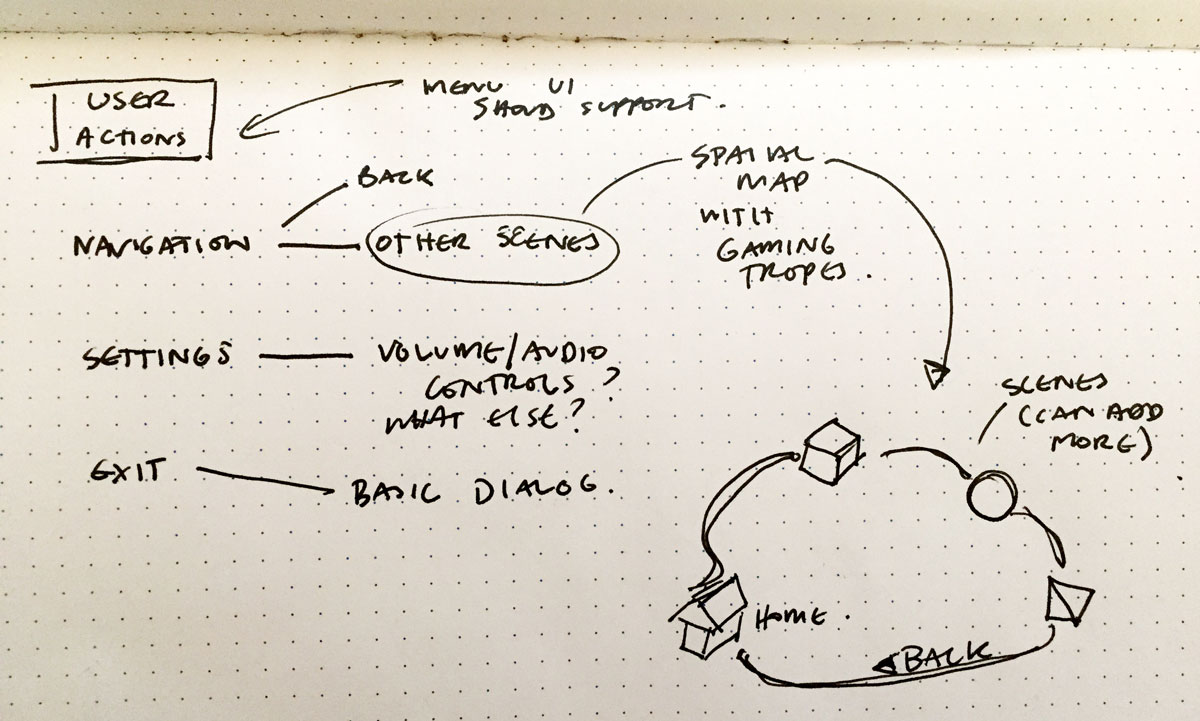 USER
ACTIONS
MENU UI
SHOUD SUPPORT.
BACK
NAVIGATION
OTHER SCENES
SPATIAL
MAP
WITH
GAMING
TROPES.
SETTINGS
VOLUME/AUDIO
CONTROLS?
WHAT ELSE?
EXIT
BASIC DIALOG.
SCENES
(CAN ADD
MORE)
HOME.
BACK